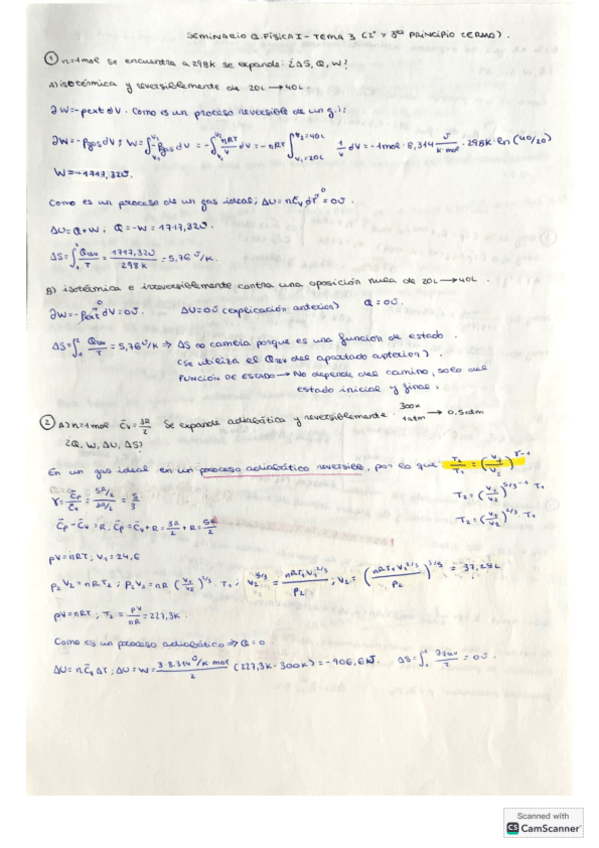 SEMINARIO Q.FÍSICA I - TEMA 3 (2º Y 3er PRINCIPIO TERMO).
① n=1mol se encuentra a 298K se expande: ¿ΔS, Q, W?
A) isotérmica y reversiblemente de 20L → 40L.
∂W=-pext dV. Como es un proceso reversible de un g.i:
∂W=-Pgas dV; W=∫-Pgas dV = -∫ nRT/V dV = -nRT ∫ V2=40L V1=20L 1/V dV = -1mol · 8,314 J/K·mol · 298K · ln(40/20)
W=-1717,32J.
Como es un proceso de un gas ideal; ΔU=nC̄v dT 0 = 0J.
ΔU=Q+W; Q=-W=1717,32J.
ΔS=∫ Qrev/T = 1717,32J/298K = 5,76 J/K.
B) isotérmica e irreversiblemente contra una oposición nula de 20L → 40L.
∂W=-Pext 0 dV=0J. ΔU=0J (explicación anterior) Q=0J.
ΔS=∫ Qrev/T = 5,76 J/K ⇒ ΔS no cambia porque es una función de estado.
(se utiliza el Qrev del apartado anterior).
FUNCIÓN DE ESTADO → No depende del camino, solo del
estado inicial y final.
② A) n=1mol C̄v = 3R/2 Se expande adiabática y reversiblemente. 300K 1atm → 0,5atm
¿Q, W, ΔU, ΔS?
En un gas ideal en un proceso adiabático reversible, por lo que: T2/T1 = (V1/V2)^γ-1
γ = C̄p/C̄v = 5R/2 / 3R/2 = 5/3
T2 = (V1/V2)^5/3-1 T1
C̄p - C̄v = R; C̄p = C̄v + R = 3R/2 + R = 5R/2
T2 = (V1/V2)^2/3 T1
pV=nRT; V1=24,6
P2V2 = nRT2; P2V2 = nR (V1/V2)^2/3 · T1; V2^5/3 = nRT1V1^2/3 / P2; V2 = (nRT1V1^2/3 / P2)^3/5 = 37,28L
pV=nRT; T2 = pV/nR = 227,3K.
Como es un proceso adiabático ⇒ Q=0
ΔU = nC̄v ΔT; ΔU=W= 3·8,314 J/K mol / 2 (227,3K-300K) = -906,6J. ΔS=∫ ∂qrev/T = 0J.
Scanned with
CS CamScanner